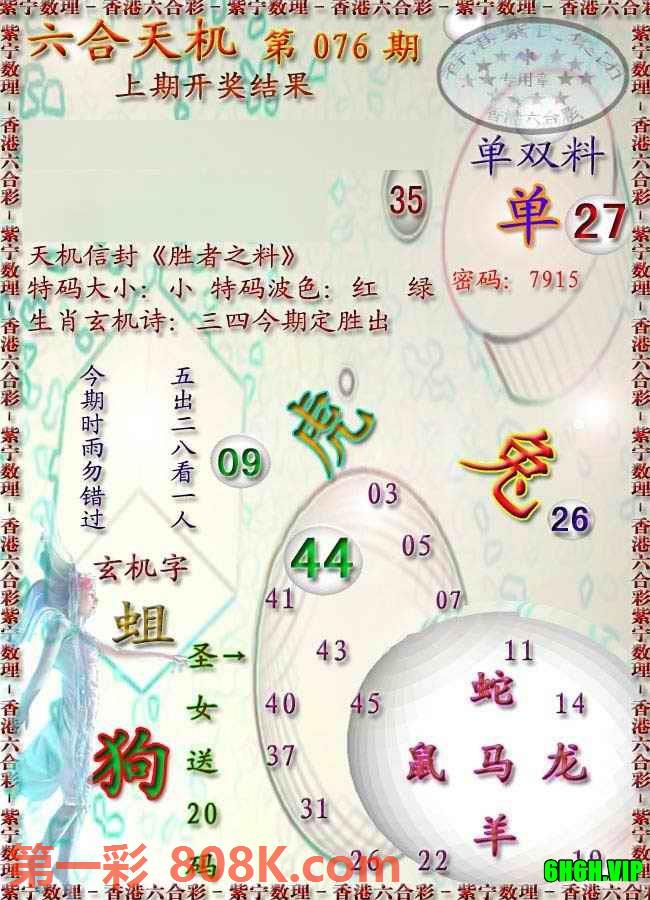 紫宁数理－香港六合彩－紫宁数理－香港六合彩－紫宁数理－香港六合彩－紫宁数理
六合天机 第 076 期
上期开奖结果
专用章
香港六合彩
单双料
单 27
35
天机信封《胜者之料》
特码大小：小 特码波色：红 绿
密码：7915
生肖玄机诗：三四今期定胜出
五出二八看一人
今期时雨勿错过
09
虎
兔
26
03
44
05
41
07
玄机字
蛆
圣女送20码
→
43
11
蛇
40
45
14
狗
37
鼠 马 龙
31
羊
26
22
19
第一彩 808K.com
6H6H.VIP
紫宁数理－香港六合彩－紫宁数理－香港六合彩－紫宁数理－香港六合彩－紫宁数理